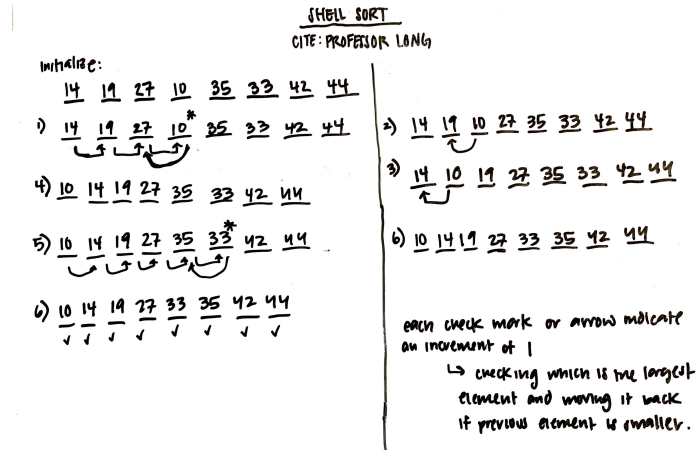 SHELL SORT
CITE: PROFESSOR LONG
initialize:
14 19 27 10 35 33 42 44
1) 14 19 27 10* 35 33 42 44
4) 10 14 19 27 35 33 42 44
5) 10 14 19 27 35 33* 42 44
6) 10 14 19 27 33 35 42 44
2) 14 19 10 27 35 33 42 44
3) 14 10 19 27 35 33 42 44
6) 10 14 19 27 33 35 42 44
each check mark or arrow indicate
an increment of 1
↳ checking which is the largest
element and moving it back
if previous element is smaller.